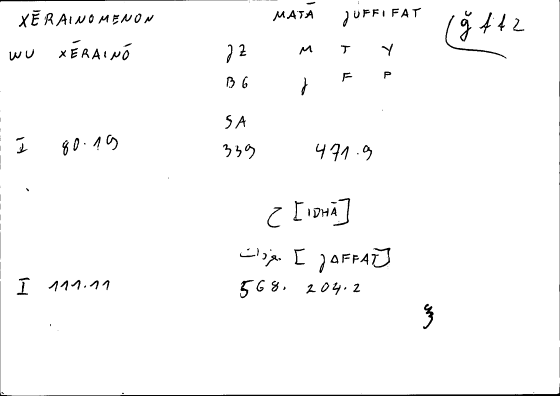 XĒRAINOMENON MATĀ JUFFIFAT
WU XĒRAINŌ JZ M T Y
BG J F P
SA
I 80.19 339 471.9
ح [IDHĀ]
[JAFFAT]
I 111.11 568. 204.2